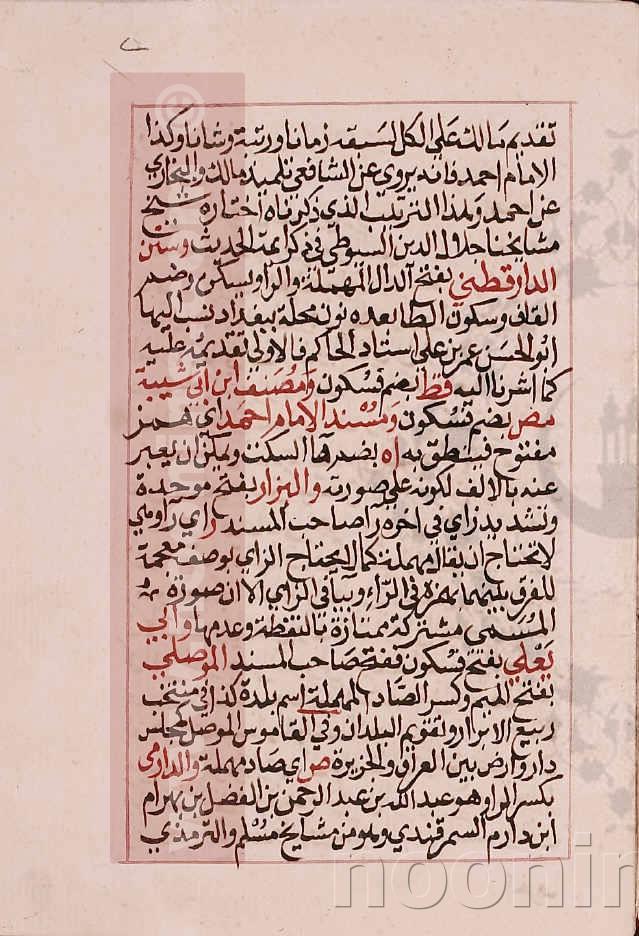 تقديم مالك على الكل لسبقه زمانا ورتبة وشانا وكذا
الامام احمد فانه يروي عن الشافعي تلميذ مالك والبخاري
عن احمد ولهذا الترتيب الذي ذكرناه اختاره شيخ
مشايخنا جلال الدين السيوطي في ذكر ائمة الحديث وسنن
الدارقطني بفتح الدال المهملة والراو يسكن وضم
القاف وسكون الطا بعده نون محلة ببغداد نسب اليها
ابو الحسن عمر بن علي استاد الحاكم فالاولى تقديمه عليه
كما اشرنا اليه قط بضم فسكون ومصنف ابن ابي شيبة
مص بضم فسكون ومسند الامام احمد اي همز
مفتوح فينطق به اه بضم ها السكت ويمكن ان يعبر
عنه بالالف لكونه على صورته والبزار بفتح موحدة
وتشديد زاي في اخره را صاحب المسند ر اي را ولي
لا تحتاج ان يقال مهملة كما لا يحتاج الزاي بوصف معجمة
للفرق بينهما بهمزة في الراء وبيا في الزاي الا ان صورة
المسمى مشتركة ممتازة بالنقطة وعدمها وابي
يعلى بفتح فسكون ففتح صاحب المسند الموصلي
بفتح الميم وكسر الصاد المهملة اسم بلدة كذا في منتخب
ربيع الابرار وتقويم البلدان وفي القاموس الموصل كمجلس
دار وارض بين العراق والجزيرة ص اي صاد مهملة والدارمي
بكسر الراو هو عبد الله بن عبد الرحمن بن الفضل بن بهرام
ابن دارم السمرقندي وهو من مشايخ مسلم والترمذي
noonin